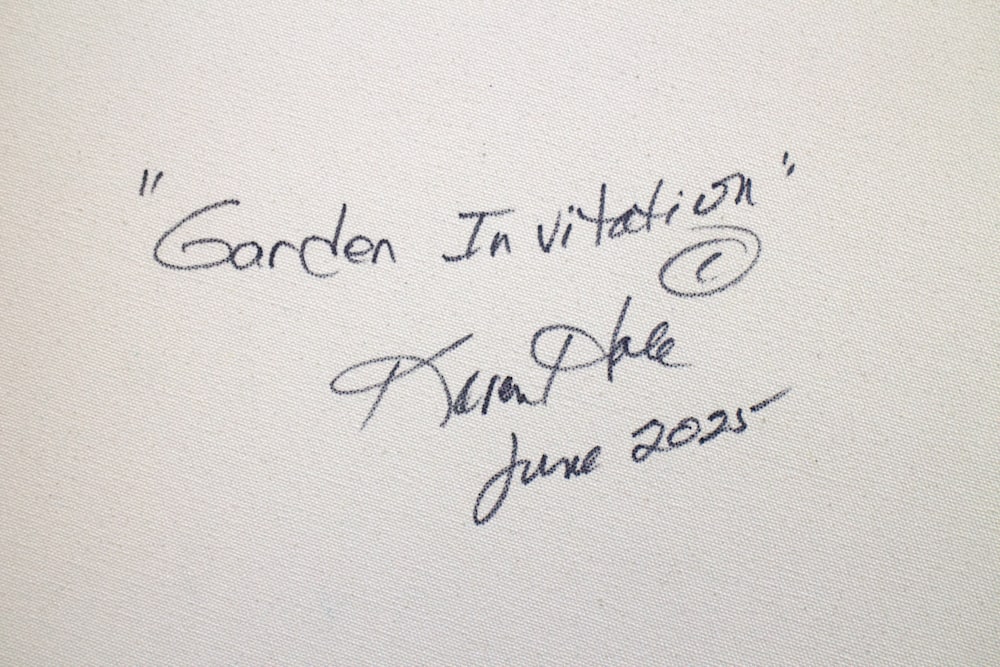 "Garden Invitation"
©
Karen Hale
June 2025